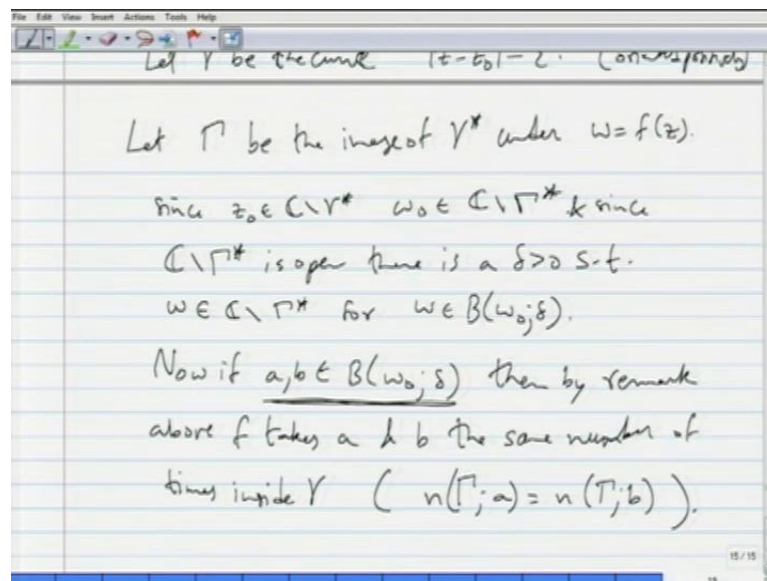 File Edit View Insert Actions Tools Help
Let γ be the curve |z-z₀|=ε. (
Let Γ be the image of γ* under w=f(z).
since z₀ ∈ ℂ\γ* ω₀ ∈ ℂ\Γ* & since
ℂ\Γ* is open there is a δ>0 s.t.
w ∈ ℂ\Γ* for w ∈ B(ω₀;δ).
Now if a,b ∈ B(ω₀;δ) then by remark
above f takes a & b the same number of
times inside γ ( n(Γ;a) = n(Γ;b) ).
15/15